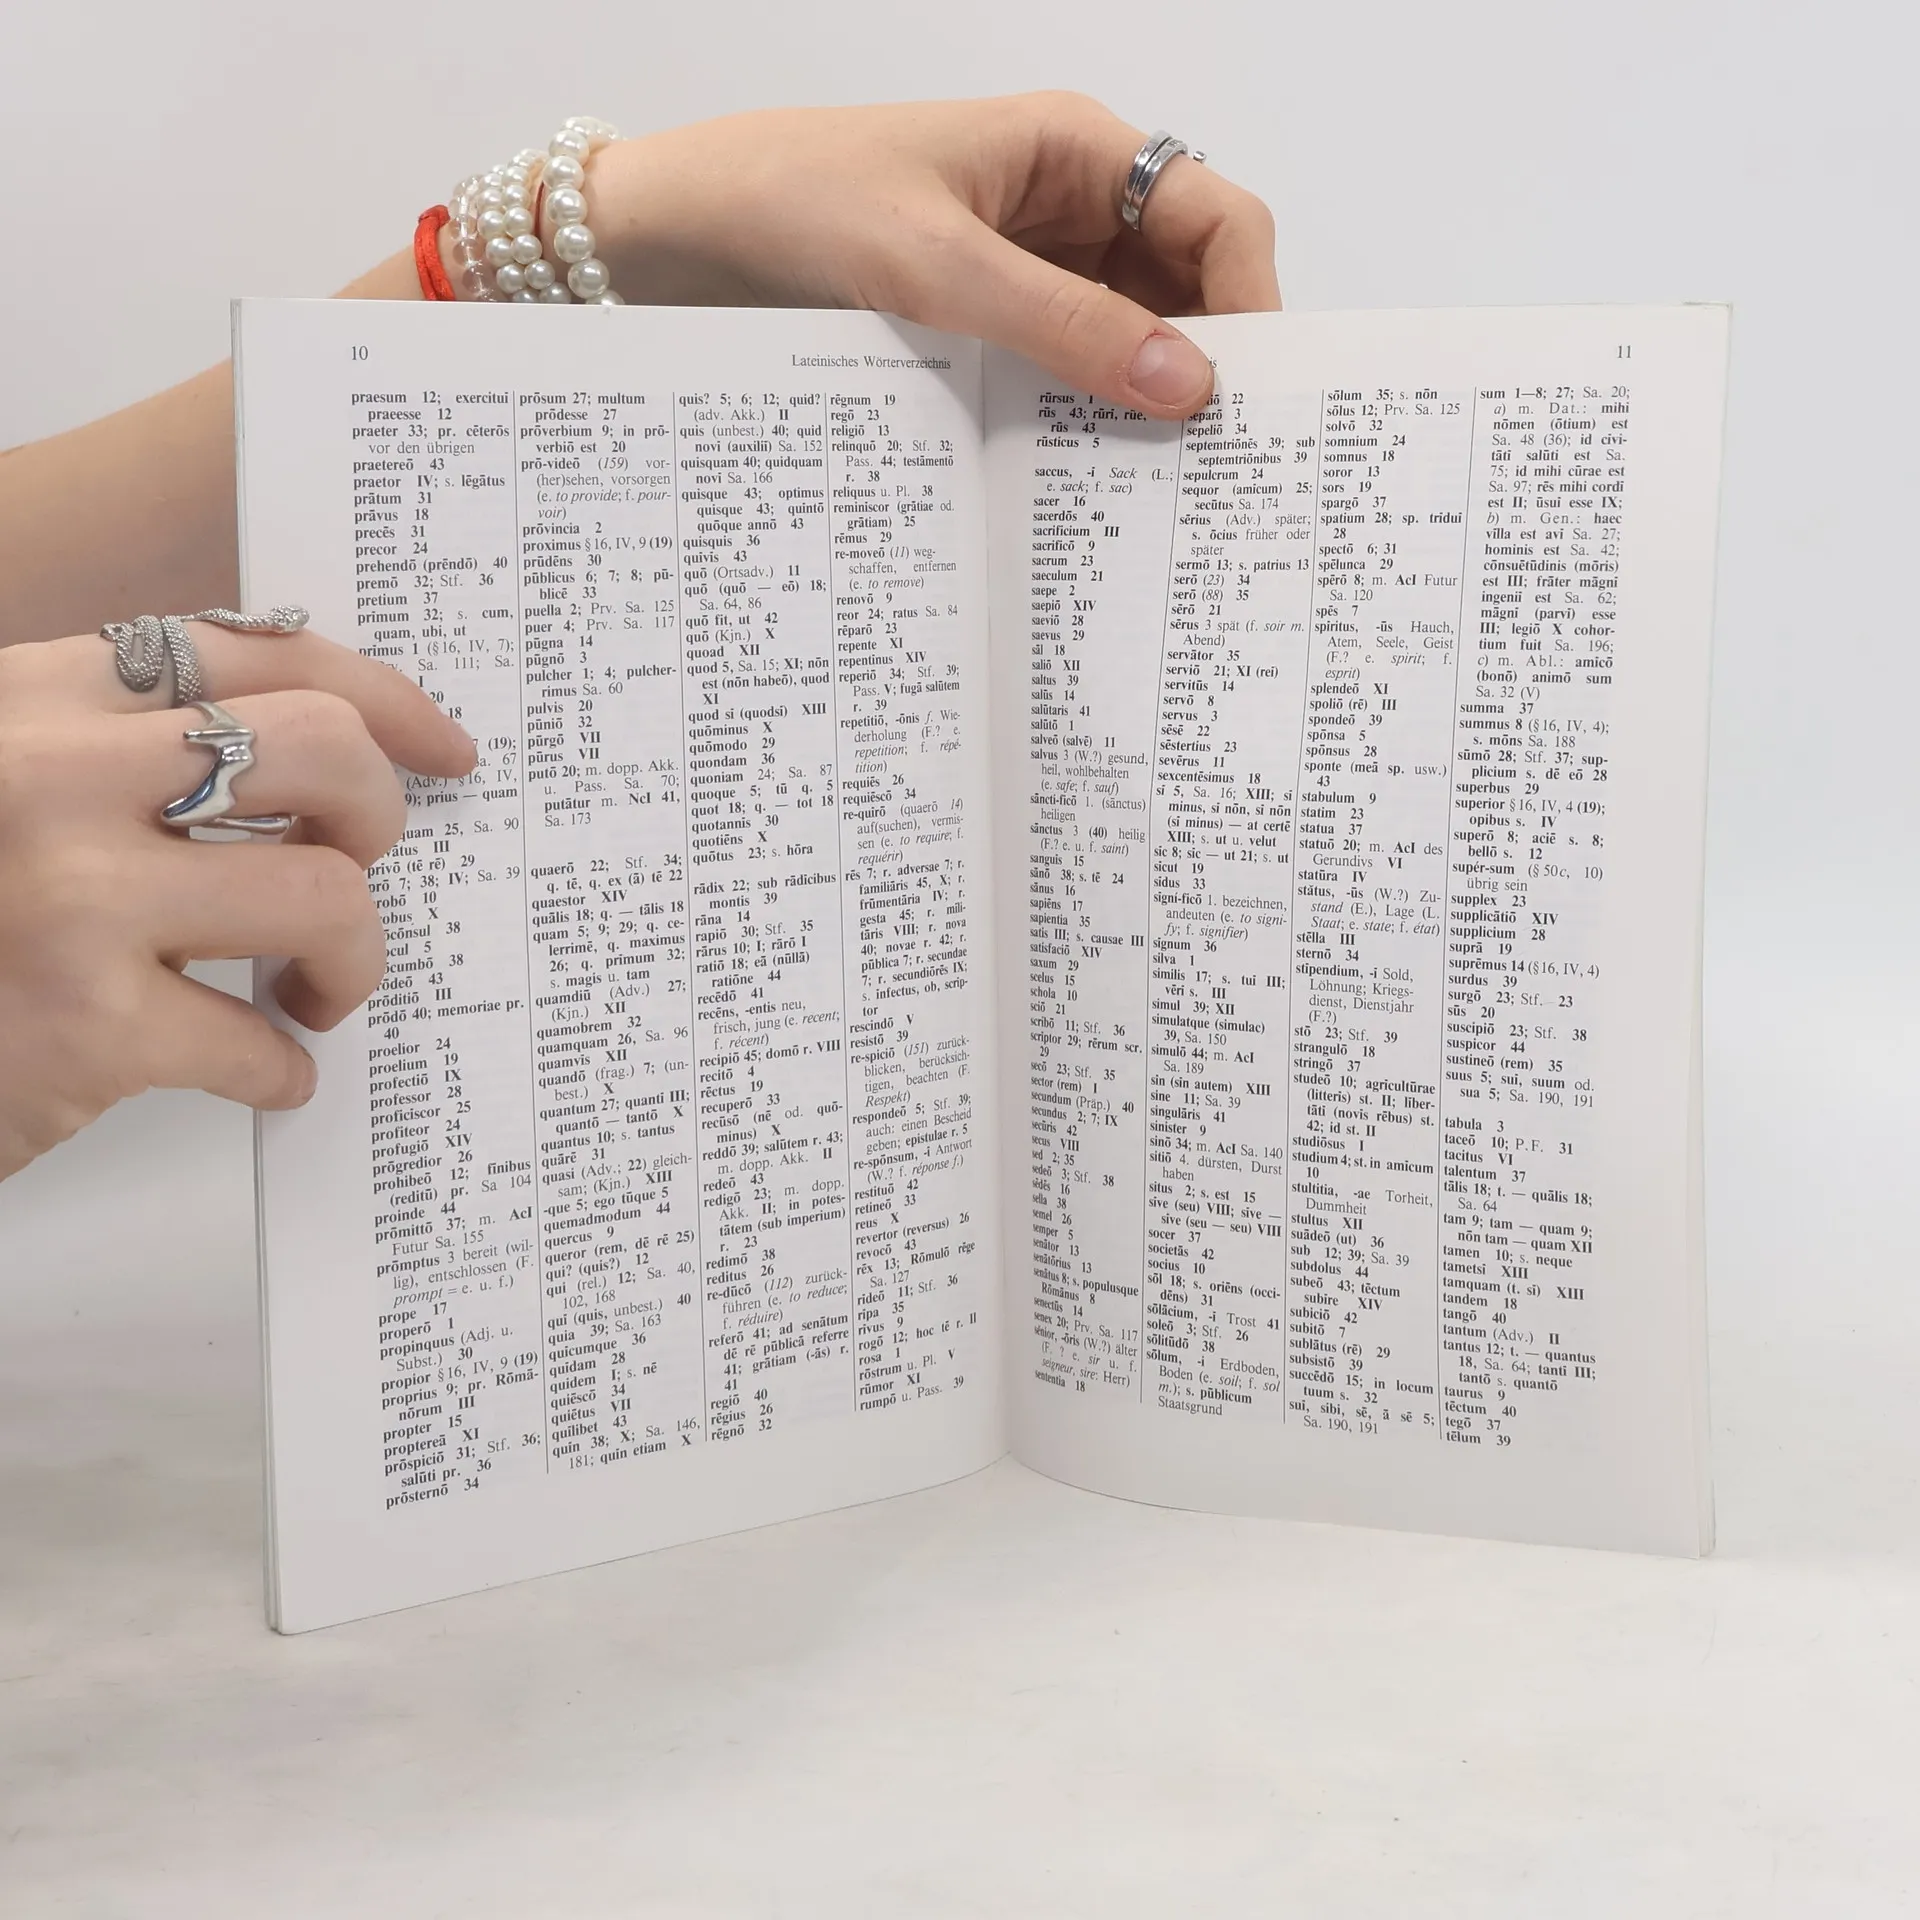 10
Lateinisches Wörterverzeichnis
praesum 12; exercituī
praeesse 12
praeter 33; pr. cēterōs
vor den übrigen
praetereō 43
praetor IV; s. lēgātus
prātum 31
prāvus 18
precēs 31
precor 24
prehendō (prēndō) 40
premō 32; Stf. 36
pretium 37
primum 32; s. cum,
quam, ubi, ut
primus 1 (§ 16, IV, 7);
Sa. 111; Sa.
I
20
18
(19);
Sa. 67
(Adv.) §16, IV,
9); prius — quam
quam 25, Sa. 90
III
prīvō (tē rē) 29
prō 7; 38; IV; Sa. 39
10
X
38
5
38
43
prōditiō III
prōdō 40; memoriae pr.
40
proelior 24
proelium 19
profectiō IX
professor 28
proficiscor 25
profiteor 24
profugiō XIV
prōgredior 26
prohibeō 12; fīnibus
(reditū) pr. Sa 104
proinde 44
prōmittō 37; m. AcI
Futur Sa. 155
prōmptus 3 bereit (wil-
lig), entschlossen (F.
prompt = e. u. f.)
prope 17
properō 1
propinquus (Adj. u.
Subst.) 30
propior § 16, IV, 9 (19)
proprius 9; pr. Rōmā-
nōrum III
propter 15
proptereā XI
prōspiciō 31; Stf. 36;
salūtī pr. 36
prōsternō 34
prōsum 27; multum
prōdesse 27
prōverbium 9; in prō-
verbiō est 20
prō-videō (159) vor-
(her)sehen, vorsorgen
(e. to provide; f. pour-
voir)
prōvincia 2
proximus § 16, IV, 9 (19)
prūdēns 30
pūblicus 6; 7; 8; pū-
blicē 33
puella 2; Prv. Sa. 125
puer 4; Prv. Sa. 117
pūgna 14
pūgnō 3
pulcher 1; 4; pulcher-
rimus Sa. 60
pulvis 20
pūniō 32
pūrgō VII
pūrus VII
putō 20; m. dopp. Akk.
u. Pass. Sa. 70;
putātur m. NcI 41,
Sa. 173
quaerō 22; Stf. 34;
q. tē, q. ex (ā) tē 22
quaestor XIV
quālis 18; q. — tālis 18
quam 5; 9; 29; q. ce-
lerrimē, q. maximus
26; q. primum 32;
s. magis u. tam
quamdiū (Adv.) 27;
(Kjn.) XII
quamobrem 32
quamquam 26, Sa. 96
quamvīs XII
quandō (frag.) 7; (un-
best.) X
quantum 27; quantī III;
quantō — tantō X
quantus 10; s. tantus
quārē 31
quasi (Adv.; 22) gleich-
sam; (Kjn.) XIII
-que 5; ego tūque 5
quemadmodum 44
quercus 9
queror (rem, dē rē 25)
quī? (quis?) 12
quī (rel.) 12; Sa. 40,
102, 168
quī (quis, unbest.) 40
quia 39; Sa. 163
quīcumque 36
quīdam 28
quidem I; s. nē
quiēscō 34
quiētus VII
quīlibet 43
quīn 38; X; Sa. 146,
181; quīn etiam X
quis? 5; 6; 12; quid?
(adv. Akk.) II
quis (unbest.) 40; quid
novī (auxiliī) Sa. 152
quisquam 40; quidquam
novī Sa. 166
quisque 43; optimus
quisque 43; quintō
quōque annō 43
quisquis 36
quīvīs 43
quō (Ortsadv.) 11
quō (quō — eō) 18;
Sa. 64, 86
quō fit, ut 42
quō (Kjn.) X
quoad XII
quod 5, Sa. 15; XI; nōn
est (nōn habeō), quod
XI
quod sī (quodsī) XIII
quōminus X
quōmodo 29
quondam 36
quoniam 24; Sa. 87
quoque 5; tū q. 5
quot 18; q. — tot 18
quotannīs 30
quotiēns X
quōtus 23; s. hōra
rādīx 22; sub rādīcibus
montis 39
rāna 14
rapiō 30; Stf. 35
rārus 10; I; rārō I
ratiō 18; eā (nūllā)
ratiōne 44
recēdō 41
recēns, -entis neu,
frisch, jung (e. recent;
f. récent)
recipiō 45; domō r. VIII
recitō 4
rēctus 19
recuperō 33
recūsō (nē od. quō-
minus) X
reddō 39; salūtem r. 43;
m. dopp. Akk. II
redeō 43
redigō 23; m. dopp.
Akk. II; in potes-
tātem (sub imperium)
r. 23
redimō 38
reditus 26
re-dūcō (112) zurück-
führen (e. to reduce;
f. réduire)
referō 41; ad senātum
dē rē pūblicā referre
41; grātiam (-ās) r.
41
regiō 40
rēgius 26
rēgnō 32
rēgnum 19
regō 23
religiō 13
relinquō 20; Stf. 32;
Pass. 44; testāmentō
r. 38
reliquus u. Pl. 38
reminiscor (grātiae od.
grātiam) 25
rēmus 29
re-moveō (11) weg-
schaffen, entfernen
(e. to remove)
renovō 9
reor 24; ratus Sa. 84
réparō 23
repente XI
repentīnus XIV
reperiō 34; Stf. 39;
Pass. V; fugā salūtem
r. 39
repetītiō, -ōnis f. Wie-
derholung (F.? e.
repetition; f. répé-
tition)
requiēs 26
requiēscō 34
re-quīrō (quaerō 14)
auf(suchen), vermis-
sen (e. to require; f.
requérir)
rēs 7; r. adversae 7; r.
familiāris 45, X; r.
frūmentāria IV; r.
gesta 45; r. mīli-
tāris VIII; r. nova
40; novae r. 42; r.
pūblica 7; r. secundae
7; r. secundiōrēs IX;
s. īnfectus, ob, scrīp-
tor
rescindō V
resistō 39
re-spiciō (151) zurück-
blicken, berücksich-
tigen, beachten (F.
Respekt)
respondeō 5; Stf. 39;
auch: einen Bescheid
geben; epistulae r. 5
re-spōnsum, -ī Antwort
(W.? f. réponse f.)
restituō 42
retineō 33
reus X
revertor (reversus) 26
revocō 43
rēx 13; Rōmulō rēge
Sa. 127
rīdeō 11; Stf. 36
rīpa 35
rīvus 9
rogō 12; hoc tē r. II
rosa 1
rōstrum u. Pl. V
rūmor XI
rumpō u. Pass. 39
11
rūrsus 1
rūs 43; rūrī, rūe,
rūs 43
rūsticus 5
saccus, -ī Sack (L.;
e. sack; f. sac)
sacer 16
sacerdōs 40
sacrificium III
sacrificō 9
sacrum 23
saeculum 21
saepe 2
saepiō XIV
saeviō 28
saevus 29
sāl 18
saliō XII
saltus 39
salūs 14
salūtaris 41
salūtō 1
salveō (salvē) 11
salvus 3 (W.?) gesund,
heil, wohlbehalten
(e. safe; f. sauf)
sāncti-ficō 1. (sānctus)
heiligen
sānctus 3 (40) heilig
(F.? e. u. f. saint)
sanguis 15
sānō 38; s. tē 24
sānus 16
sapiēns 17
sapientia 35
satis III; s. causae III
satisfaciō XIV
saxum 29
scelus 15
schola 10
sciō 21
scrībō 11; Stf. 36
scriptor 29; rērum scr.
29
secō 23; Stf. 35
sector (rem) I
secundum (Präp.) 40
secundus 2; 7; IX
secūris 42
secus VIII
sed 2; 35
sedeō 3; Stf. 38
sēdēs 16
sella 38
semel 26
semper 5
senātor 13
senātōrius 13
senātus 8; s. populusque
Rōmānus 8
senectūs 14
senex 20; Prv. Sa. 117
senior, -ōris (W.?) älter
(F. ? e. sir u. f.
seigneur, sire; Herr)
sententia 18
22
separō 3
sepeliō 34
septemtriōnēs 39; sub
septemtriōnibus 39
sepulcrum 24
sequor (amīcum) 25;
secūtus Sa. 174
sērius (Adv.) später;
s. ōcius früher oder
später
sermō 13; s. patrius 13
serō (23) 34
serō (88) 35
sērō 21
sērus 3 spät (f. soir m.
Abend)
servātor 35
serviō 21; XI (reī)
servitūs 14
servō 8
servus 3
sēsē 22
sēstertius 23
sevērus 11
sexcentēsimus 18
sī 5, Sa. 16; XIII; sī
minus, sī nōn, sī nōn
(sī minus) — at certē
XIII; s. ut u. velut
sīc 8; sīc — ut 21; s. ut
sīcut 19
sīdus 33
signi-ficō 1. bezeichnen,
andeuten (e. to signi-
fy; f. signifier)
signum 36
silva 1
similis 17; s. tuī III;
vērī s. III
simul 39; XII
simulatque (simulac)
39, Sa. 150
simulō 44; m. AcI
Sa. 189
sīn (sīn autem) XIII
sine 11; Sa. 39
singulāris 41
sinister 9
sinō 34; m. AcI Sa. 140
sitiō 4. dürsten, Durst
haben
situs 2; s. est 15
sīve (seu) VIII; sīve —
sīve (seu — seu) VIII
socer 37
societās 42
socius 10
sōl 18; s. oriēns (occi-
dēns) 31
sōlācium, -ī Trost 41
soleō 3; Stf. 26
sōlitūdō 38
sōlum, -ī Erdboden,
Boden (e. soil; f. sol
m.); s. pūblicum
Staatsgrund
sōlum 35; s. nōn
sōlus 12; Prv. Sa. 125
solvō 32
somnium 24
somnus 18
soror 13
sors 19
spargō 37
spatium 28; sp. tridui
28
spectō 6; 31
spēlunca 29
spērō 8; m. AcI Futur
Sa. 120
spēs 7
spīritus, -ūs Hauch,
Atem, Seele, Geist
(F.? e. spirit; f.
esprit)
splendeō XI
spoliō (rē) III
spondeō 39
spōnsa 5
spōnsus 28
sponte (meā sp. usw.)
43
stabulum 9
statim 23
statua 37
statuō 20; m. AcI des
Gerundivs VI
statūra IV
stātus, -ūs (W.?) Zu-
stand (E.), Lage (L.
Staat; e. state; f. état)
stēlla III
sternō 34
stīpendium, -ī Sold,
Löhnung; Kriegs-
dienst, Dienstjahr
(F.?)
stō 23; Stf. 39
strangulō 18
stringō 37
studeō 10; agricultūrae
(litterīs) st. II; līber-
tātī (novīs rēbus) st.
42; id st. II
studiōsus I
studium 4; st. in amīcum
10
stultitia, -ae Torheit,
Dummheit
stultus XII
suādeō (ut) 36
sub 12; 39; Sa. 39
subdolus 44
subeō 43; tēctum
subīre XIV
subiciō 42
subitō 7
sublātus (rē) 29
subsistō 39
succēdō 15; in locum
tuum s. 32
suī, sibi, sē, ā sē 5;
Sa. 190, 191
sum 1—8; 27; Sa. 20;
a) m. Dat.: mihi
nōmen (ōtium) est
Sa. 48 (36); id cīvi-
tātī salūtī est Sa.
75; id mihi cūrae est
Sa. 97; rēs mihi cordī
est II; ūsuī esse IX;
b) m. Gen.: haec
vīlla est avī Sa. 27;
hominis est Sa. 42;
cōnsuētūdinis (mōris)
est III; frāter māgnī
ingeniī est Sa. 62;
māgnī (parvī) esse
III; legiō X cohor-
tium fuit Sa. 196;
c) m. Abl.: amīcō
(bonō) animō sum
Sa. 32 (V)
summa 37
summus 8 (§ 16, IV, 4);
s. mōns Sa. 188
sūmō 28; Stf. 37; sup-
plicium s. dē eō 28
superbus 29
superior § 16, IV, 4 (19);
opibus s. IV
superō 8; aciē s. 8;
bellō s. 12
supér-sum (§ 50c, 10)
übrig sein
supplex 23
supplicātiō XIV
supplicium 28
suprā 19
suprēmus 14 (§ 16, IV, 4)
surdus 39
surgō 23; Stf. 23
sūs 20
suscipiō 23; Stf. 38
suspicor 44
sustineō (rem) 35
suus 5; suī, suum od.
sua 5; Sa. 190, 191
tabula 3
taceō 10; P. F. 31
tacitus VI
talentum 37
tālis 18; t. — quālis 18;
Sa. 64
tam 9; tam — quam 9;
nōn tam — quam XII
tamen 10; s. neque
tametsī XIII
tamquam (t. sī) XIII
tandem 18
tangō 40
tantum (Adv.) II
tantus 12; t. — quantus
18, Sa. 64; tantī III;
tantō s. quantō
taurus 9
tēctum 40
tegō 37
tēlum 39